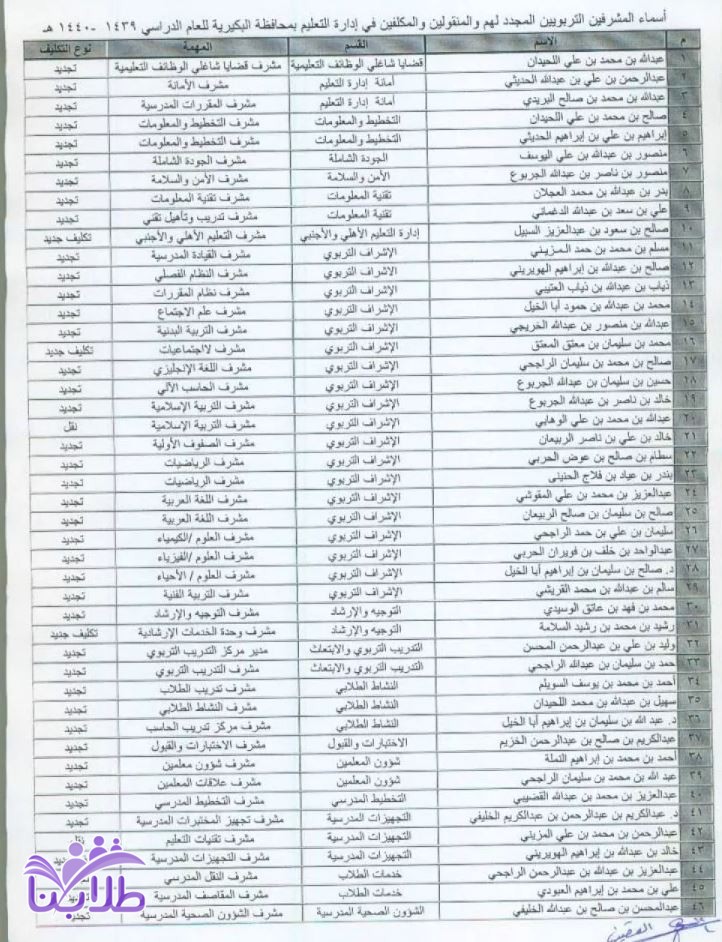 أسماء المشرفين التربويين المجدد لهم والمنقولين والمكلفين في إدارة التعليم بمحافظة البكيرية للعام الدراسي ١٤٣٩ - ١٤٤٠ هـ
م الاسم القسم المهمة نوع التكليف
١ عبدالله بن محمد بن علي اللحيدان قضايا شاغلي الوظائف التعليمية مشرف قضايا شاغلي الوظائف التعليمية تجديد
٢ عبدالرحمن بن علي بن عبدالله الحديثي أمانة إدارة التعليم مشرف الأمانة تجديد
٣ عبدالله بن محمد بن صالح البريدي أمانة إدارة التعليم مشرف المقررات المدرسية تجديد
٤ صالح بن محمد بن علي اللحيدان التخطيط والمعلومات مشرف التخطيط والمعلومات تجديد
٥ إبراهيم بن علي بن إبراهيم الحديثي التخطيط والمعلومات مشرف التخطيط والمعلومات تجديد
٦ منصور بن عبدالله بن علي اليوسف الجودة الشاملة مشرف الجودة الشاملة تجديد
٧ منصور بن ناصر بن عبدالله الجربوع الأمن والسلامة مشرف الأمن والسلامة تجديد
٨ بدر بن عبدالله بن محمد العجلان تقنية المعلومات مشرف تقنية المعلومات تجديد
٩ علي بن سعد بن عبدالله الدغماني تقنية المعلومات مشرف تدريب وتأهيل تقني تجديد
١٠ صالح بن سعود بن عبدالعزيز السبيل إدارة التعليم الأهلي والأجنبي مشرف التعليم الأهلي والأجنبي تكليف جديد
١١ مسلم بن محمد بن حمد المزيني الإشراف التربوي مشرف القيادة المدرسية تجديد
١٢ صالح بن عبدالله بن إبراهيم الهويريني الإشراف التربوي مشرف النظام الفصلي تجديد
١٣ ذياب بن عبدالله بن ذياب العتيبي الإشراف التربوي مشرف نظام المقررات تجديد
١٤ محمد بن عبدالله بن حمود أبا الخيل الإشراف التربوي مشرف علم الاجتماع تجديد
١٥ عبدالله بن منصور بن عبدالله الخريجي الإشراف التربوي مشرف التربية البدنية تجديد
١٦ محمد بن سليمان بن معتق المعتق الإشراف التربوي مشرف لااجتماعيات تكليف جديد
١٧ صالح بن محمد بن سليمان الراجحي الإشراف التربوي مشرف اللغة الإنجليزي تجديد
١٨ حسين بن سليمان بن عبدالله الجربوع الإشراف التربوي مشرف الحاسب الآلي تجديد
١٩ خالد بن ناصر بن عبدالله الجربوع الإشراف التربوي مشرف التربية الإسلامية تجديد
٢٠ عبدالله بن محمد بن علي الوهابي الإشراف التربوي مشرف التربية الإسلامية نقل
٢١ خالد بن علي بن ناصر الربيعان الإشراف التربوي مشرف الصفوف الأولية تجديد
٢٢ سطام بن صالح بن عوض الحربي الإشراف التربوي مشرف الرياضيات تجديد
٢٣ بندر بن عياد بن فلاج الحنيني الإشراف التربوي مشرف الرياضيات تجديد
٢٤ عبدالعزيز بن محمد بن علي المقوشي الإشراف التربوي مشرف اللغة العربية تجديد
٢٥ صالح بن سليمان بن صالح الربيعان الإشراف التربوي مشرف اللغة العربية تجديد
٢٦ سليمان بن علي بن حمد الراجحي الإشراف التربوي مشرف العلوم /الكيمياء تجديد
٢٧ عبدالواحد بن خلف بن فويران الحربي الإشراف التربوي مشرف العلوم /الفيزياء تجديد
٢٨ د. صالح بن سليمان بن إبراهيم أبا الخيل الإشراف التربوي مشرف العلوم / الأحياء تجديد
٢٩ سالم بن عبدالله بن محمد القريشي الإشراف التربوي مشرف التربية الفنية تجديد
٣٠ محمد بن فهد بن عاتق الوسيدي التوجيه والإرشاد مشرف التوجيه والإرشاد تجديد
٣١ رشيد بن محمد بن رشيد السلامة التوجيه والإرشاد مشرف وحدة الخدمات الإرشادية تكليف جديد
٣٢ وليد بن علي بن عبدالرحمن المحسن التدريب التربوي والابتعاث مدير مركز التدريب التربوي تجديد
٣٣ حمد بن سليمان بن عبدالله الراجحي التدريب التربوي والابتعاث مشرف التدريب التربوي تجديد
٣٤ أحمد بن محمد بن يوسف السويلم النشاط الطلابي مشرف تدريب الطلاب تجديد
٣٥ سهيل بن عبدالله بن محمد اللحيدان النشاط الطلابي مشرف النشاط الطلابي تجديد
٣٦ د. عبد الله بن سليمان بن إبراهيم أبا الخيل النشاط الطلابي مشرف مركز تدريب الحاسب تجديد
٣٧ عبدالكريم بن صالح بن عبدالرحمن الخزيم الاختبارات والقبول مشرف الاختبارات والقبول تجديد
٣٨ أحمد بن محمد بن إبراهيم النملة شؤون المعلمين مشرف شؤون معلمين تجديد
٣٩ عبد الله بن محمد بن سليمان الراجحي شؤون المعلمين مشرف علاقات المعلمين تجديد
٤٠ عبدالعزيز بن محمد بن عبدالله القضيبي التخطيط المدرسي مشرف التخطيط المدرسي تجديد
٤١ د. عبدالكريم بن عبدالرحمن بن عبدالكريم الخليفي التجهيزات المدرسية مشرف تجهيز المختبرات المدرسية تجديد
٤٢ عبدالرحمن بن محمد بن علي المزيني التجهيزات المدرسية مشرف تقنيات التعليم
٤٣ خالد بن عبدالله بن إبراهيم الهويريني التجهيزات المدرسية مشرف التجهيزات المدرسية
٤٤ عبدالعزيز بن عبدالله بن عبدالرحمن الراجحي خدمات الطلاب مشرف النقل المدرسي
٤٥ علي بن محمد بن إبراهيم العبودي خدمات الطلاب مشرف المقاصف المدرسية
٤٦ عبدالمحسن بن صالح بن عبدالله الخليفي الشؤون الصحية المدرسية مشرف الشؤون الصحية المدرسية تجديد
طلابنا